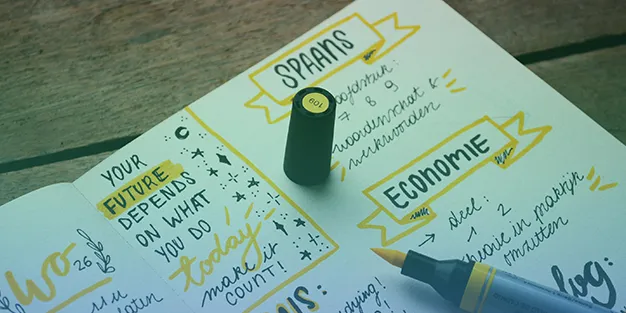 SPAANS
hoofdstuk:
7 8 9
woordenschat &
werkwoorden
109
YOUR
FUTURE
DEPENDS
ON WHAT
YOU DO
today
make it
COUNT!
ECONOMIE
deel:
→ 1 2
in praktijk
omzetten
WO
26
11u